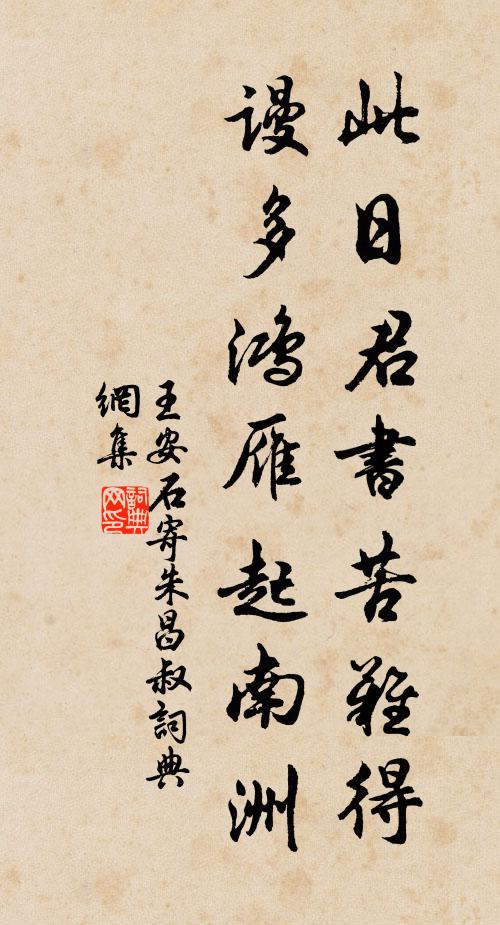 此日君書苦難得
謾多鴻雁起南洲
王安石寄朱昌叔詞典
網集
詞典
网印